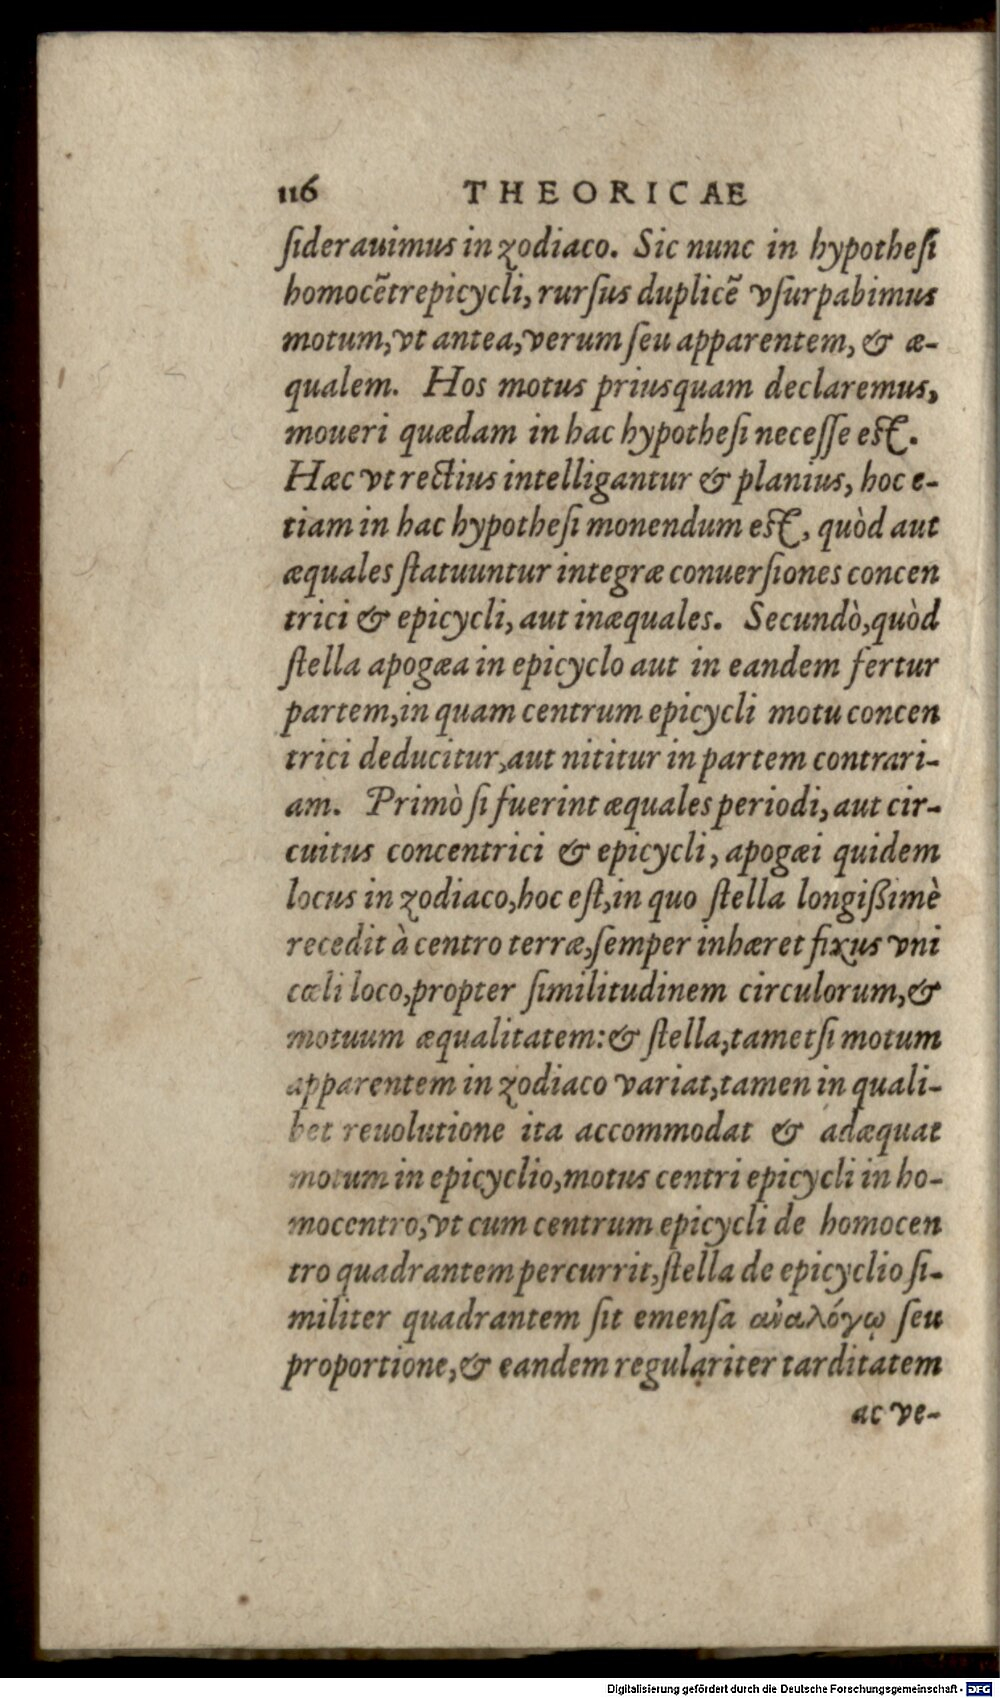 116 THEORICAE
ſiderauimus in zodiaco. Sic nunc in hypotheſi
homocẽtrepicycli, rurſus duplicẽ vſurpabimus
motum, vt antea, verum ſeu apparentem, & æ-
qualem. Hos motus priusquam declaremus,
moueri quædam in hac hypotheſi neceſſe eſt.
Hæc vt rectius intelligantur & planius, hoc e-
tiam in hac hypotheſi monendum eſt, quòd aut
æquales ſtatuuntur integræ conuerſiones concen
trici & epicycli, aut inæquales. Secundò, quòd
ſtella apogæa in epicyclo aut in eandem fertur
partem, in quam centrum epicycli motu concen
trici deducitur, aut nititur in partem contrari-
am. Primò ſi fuerint æquales periodi, aut cir-
cuitus concentrici & epicycli, apogæi quidem
locus in zodiaco, hoc eſt, in quo ſtella longißimè
recedit à centro terræ, ſemper inhæret fixus vni
cœli loco, propter ſimilitudinem circulorum, &
motuum æqualitatem: & ſtella, tametſi motum
apparentem in zodiaco variat, tamen in quali-
bet reuolutione ita accommodat & adæquat
motum in epicyclio, motus centri epicycli in ho-
mocentro, vt cum centrum epicycli de homocen
tro quadrantem percurrit, ſtella de epicyclio ſi-
militer quadrantem ſit emenſa ἀναλόγῳ ſeu
proportione, & eandem regulariter tarditatem
ac ve-
Digitalisierung gefördert durch die Deutsche Forschungsgemeinschaft - DFG